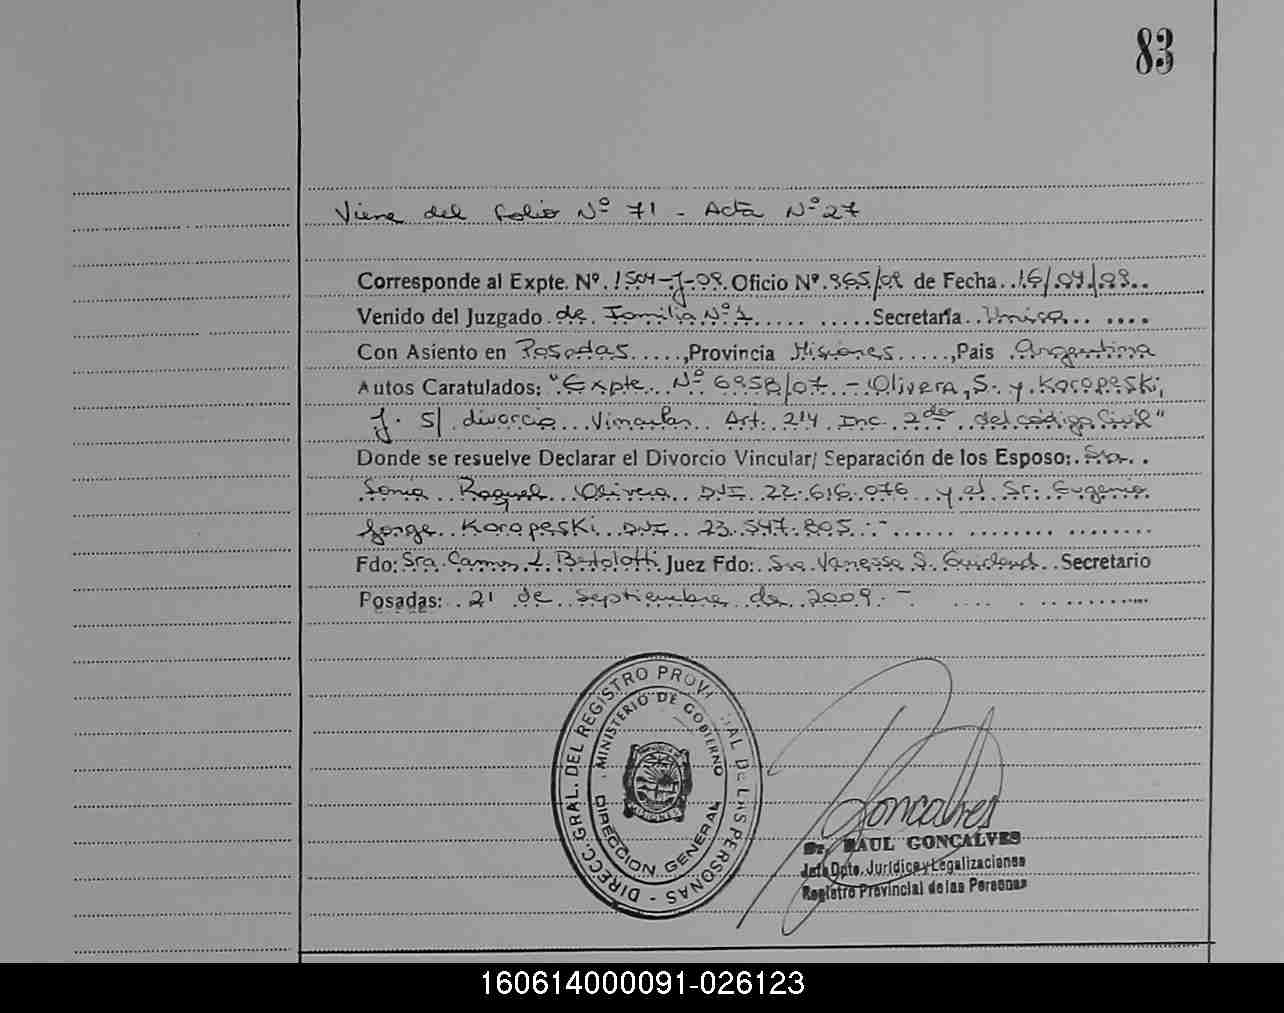 83
Viene del folio Nº 71 - Acta Nº 27
Corresponde al Expte. Nº. 1504-J-09. Oficio Nº. 865/09 de Fecha. 16/09/09..
Venido del Juzgado de Familia Nº 1 Secretaría Unica
Con Asiento en Posadas, Provincia Misiones, Pais Argentina
Autos Caratulados: "Expte. Nº 6958/07 - Olivera, S. y Koropeski,
J. S/ divorcio Vincular Art. 214 Inc 2do del código Civil"
Donde se resuelve Declarar el Divorcio Vincular/ Separación de los Esposo: Sra.
Sonia Raquel Olivera DNI 22.616.076 y el Sr. Eugenio
Jorge Koropeski DNI 23.547.805.-
Fdo: Sra. Juez Fdo: Sra. Vanessa Secretario
Posadas: 21 de Septiembre de 2009.-
DIRECC. GRAL. DEL REGISTRO PROVINCIAL DE LAS PERSONAS -
MINISTERIO DE GOBIERNO
DIRECCION GENERAL
MISIONES
Goncalves
Dr. RAUL GONCALVES
Jefe Dpto. Jurídico y Legalizaciones
Registro Provincial de las Personas
160614000091-026123